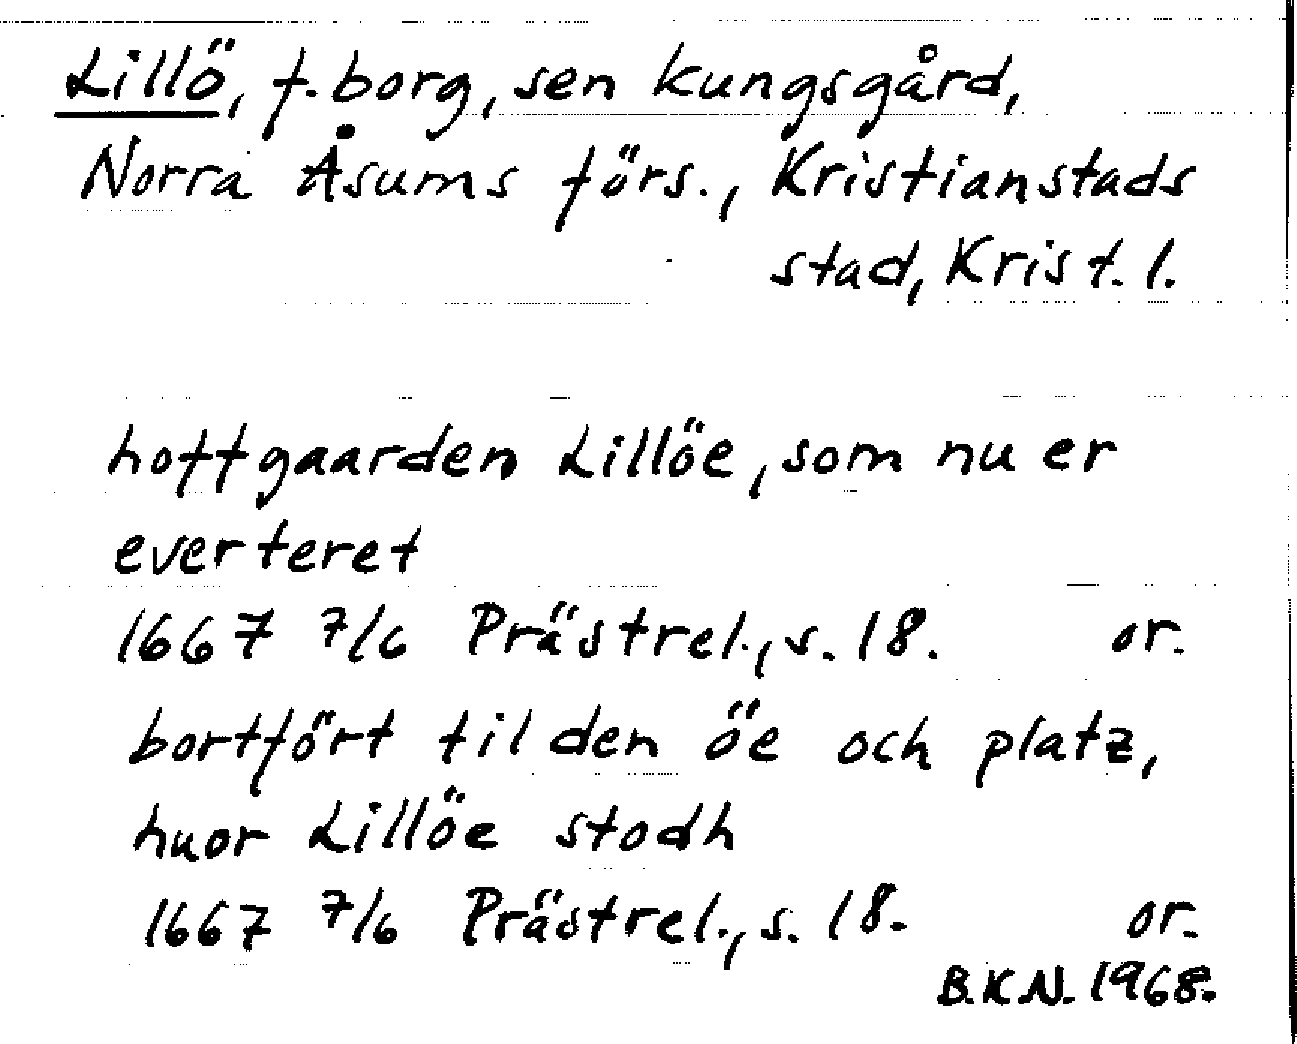 Lillö, f. borg, sen kungsgård,
Norra Åsums förs., Kristianstads
stad, Krist. l.
hoffgaarden Lillöe, som nu er
everteret
1667 7/6 Prästrel., s. 18. or.
bortfört til den öe och platz,
huor Lillöe stodh
1667 7/6 Prästrel., s. 18. or.
B.K.N. 1968.